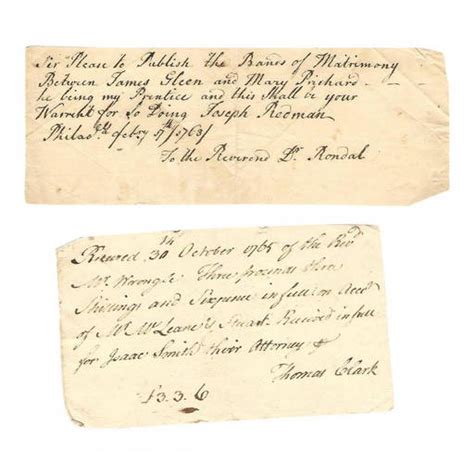 Sir Please to Publish the Bands of Matrimony
Between James Gleen and Mary Prichard
he being my Prentice and this Shall be your
Warrent for So Doing Joseph Redman
Philad 7th 1763
To the Reverend Dr. Rondal
Received 30th October 1765 of the Revd
Mr. Wrongle Three pounds three
Shillings and Sixpence in full on Acct
of Mr. McLeane & Stuart Received in full
for Isaac Smith their Attorney
Thomas Clark
£3.3.6